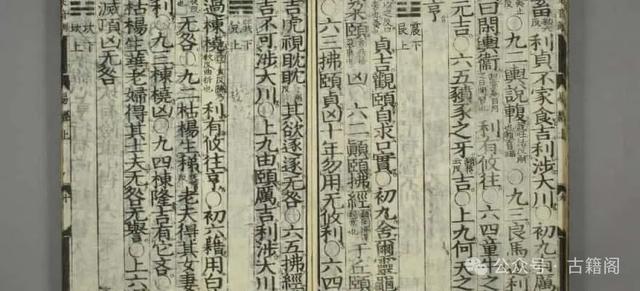 畜 利貞不家食吉利涉大川○初九有厲
○九二輿說輹 ○九三良馬
曰閑輿衛 利有攸往○六四童
元吉○六五豶豕之牙 吉○上九何天之
亨
震下
艮上
貞吉觀頤自求口實○初九舍爾靈龜
朶頤凶○六二顚頤拂經 于丘頤
○六三拂頤貞凶十年勿用无攸利○六四
吉虎視眈眈 其欲逐逐无咎○六五拂經
吉不可涉大川○上九由頤厲吉利涉大川
兌上
過棟橈 利有攸往亨○初六藉用白
无咎○九二枯楊生稊 老夫得其女妻
利○九三棟橈凶○九四棟隆吉有它吝
枯楊生華老婦得其士夫无咎无譽○上六
滅頂凶无咎
坎下
坎上
公众号 · 古籍阁